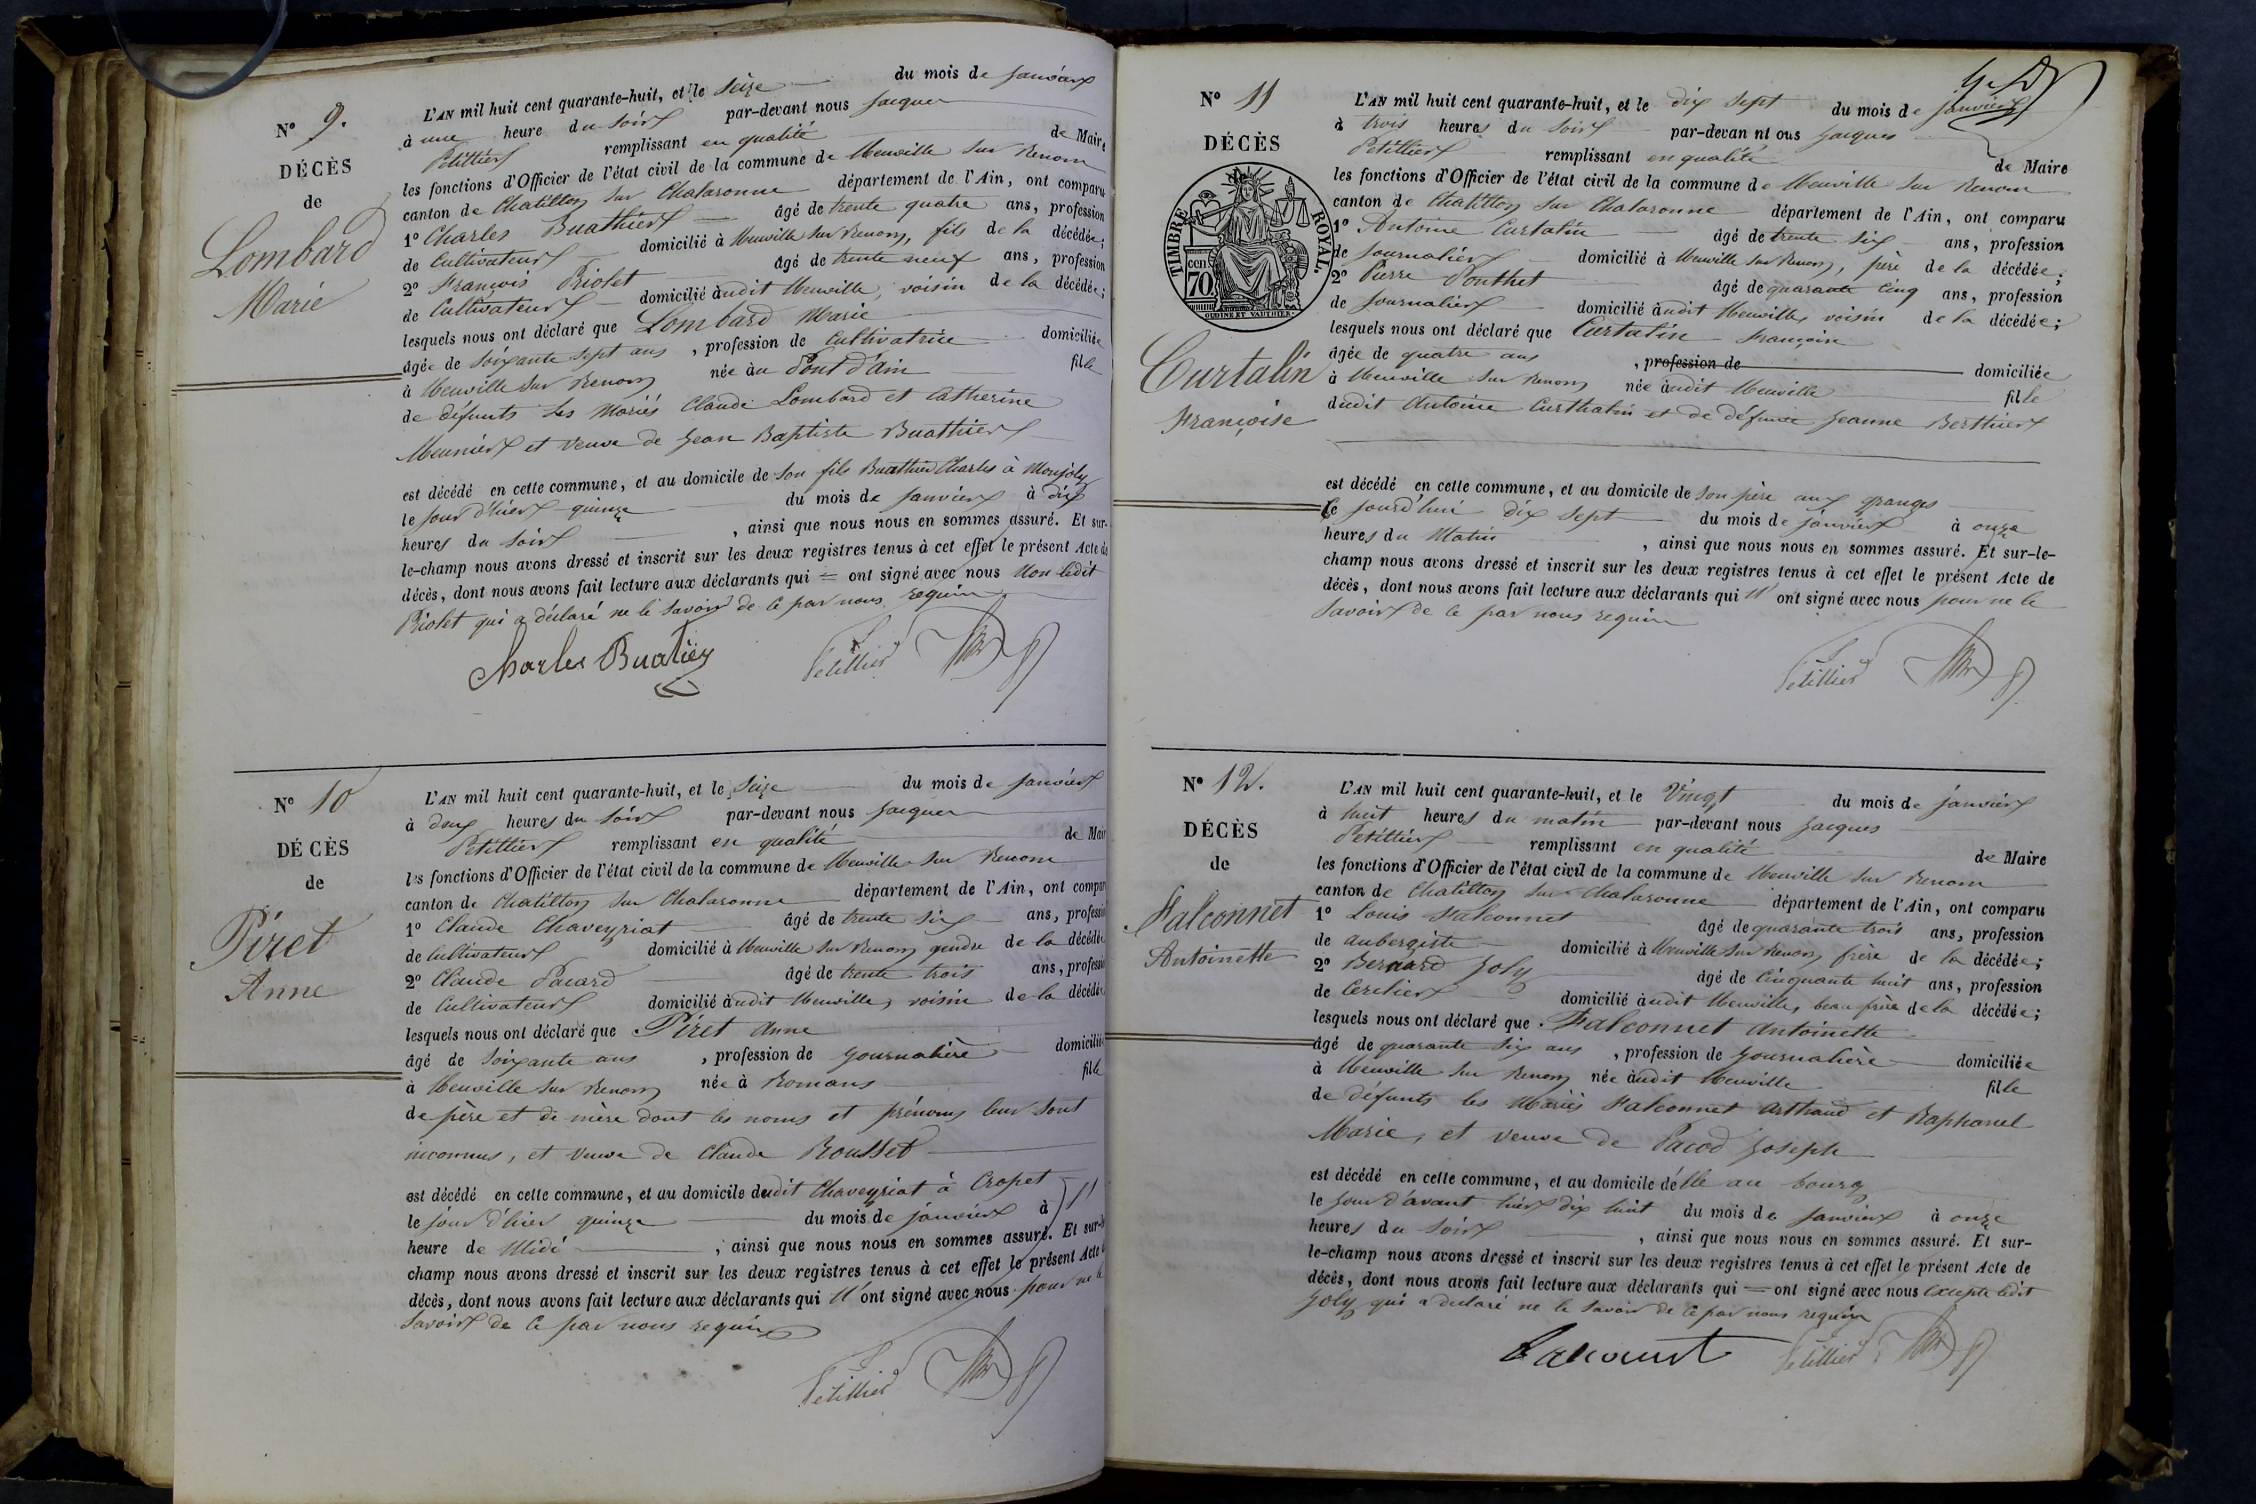 N° 9.
DÉCÈS
de
Lombard
Marie
L'AN mil huit cent quarante-huit, et le Seize du mois de janvier
à une heure du soir par-devant nous Jacques
Petittier remplissant en qualité de Maire
les fonctions d'Officier de l'état civil de la commune de Neuville sur Renom
canton de Chatillon sur Chalaronne département de l'Ain, ont comparu
1° Charles Buathier âgé de trente quatre ans, profession
de Cultivateur domicilié à Neuville sur Renom, fils de la décédée;
2° François Piolet âgé de trente neuf ans, profession
de Cultivateur domicilié àudit Neuville, voisin de la décédée;
lesquels nous ont déclaré que Lombard Marie
âgée de soixante sept ans, profession de Cultivatrice domiciliée
à Neuville sur Renom née àu Pont d'ain fille
de défunts les mariés Claude Lombard et Catherine
Meunier et veuve de Jean Baptiste Buathier
est décédé en cette commune, et au domicile de son fils Buathier Charles à Monjoly
le jour d'hier quinze du mois de janvier à dix
heures du soir, ainsi que nous nous en sommes assuré. Et sur-
le-champ nous avons dressé et inscrit sur les deux registres tenus à cet effet le présent Acte de
décès, dont nous avons fait lecture aux déclarants qui = ont signé avec nous Non ledit
Piolet qui a déclaré ne le savoir de ce par nous requis
Charles Buatier Petittier
N° 10
DÉCÈS
de
Piret
Anne
L'AN mil huit cent quarante-huit, et le Seize du mois de janvier
à deux heures du soir par-devant nous Jacques
Petittier remplissant en qualité de Mair
les fonctions d'Officier de l'état civil de la commune de Neuville sur Renom
canton de Chatillon sur Chalaronne département de l'Ain, ont compar
1° Claude Chaveyriat âgé de trente six ans, profession
de Cultivateur domicilié à Neuville sur Renom gendre de la décédée
2° Claude Pacard âgé de trente trois ans, profession
de Cultivateur domicilié àudit Neuville, voisin de la décédée
lesquels nous ont déclaré que Piret Anne
âgé de soixante ans, profession de Journalière domiciliée
à Neuville sur Renom née à Romans fille
de père et de mère dont les noms et prénoms leur sont
inconnus, et veuve de Claude Rousset
est décédé en cette commune, et au domicile dudit Chaveyriat à Cropet
le jour d'hier quinze du mois de janvier à
heure de Midi, ainsi que nous nous en sommes assuré. Et sur-le-
champ nous avons dressé et inscrit sur les deux registres tenus à cet effet le présent Acte
décès, dont nous avons fait lecture aux déclarants qui n' ont signé avec nous pour ne le
savoir de ce par nous requis
Petittier
N° 11
DÉCÈS
de
TIMBRE ROYAL.
70 cen
OUDINE ET VAUTHIER.
Curtalin
Françoise
L'AN mil huit cent quarante-huit, et le dix sept du mois de janvier
à trois heures du soir par-devan nt ous Jacques
Petittier remplissant en qualité de Maire
les fonctions d'Officier de l'état civil de la commune de Neuville sur Renom
canton de Chatillon sur Chalaronne département de l'Ain, ont comparu
1° Antoine Curtalin âgé de trente six ans, profession
de journalier domicilié à Neuville sur Renom, père de la décédée;
2° Pierre Ponthet âgé de quarante cinq ans, profession
de journalier domicilié àudit Neuville, voisin de la décédée;
lesquels nous ont déclaré que Curtalin Françoise
âgée de quatre ans, profession de domiciliée
à Neuville sur Renom née àudit Neuville fille
dudit Antoine Curthalin et de défunte Jeanne Berthier
est décédé en cette commune, et au domicile de son père aux granges
Ce jourd'hui dix sept du mois de janvier à onze
heures du Matin, ainsi que nous nous en sommes assuré. Et sur-le-
champ nous avons dressé et inscrit sur les deux registres tenus à cet effet le présent Acte de
décès, dont nous avons fait lecture aux déclarants qui n' ont signé avec nous pour ne le
savoir de ce par nous requis
Petittier
N° 12.
DÉCÈS
de
Falconnet
Antoinette
L'AN mil huit cent quarante-huit, et le Vingt du mois de janvier
à huit heures du matin par-devant nous Jacques
Petittier remplissant en qualité de Maire
les fonctions d'Officier de l'état civil de la commune de Neuville sur Renom
canton de Chatillon sur Chalaronne département de l'Ain, ont comparu
1° Louis Falconnet âgé de quarante trois ans, profession
de aubergiste domicilié à Neuville sur Renom frère de la décédée;
2° Bernard Joly âgé de cinquante huit ans, profession
de Cerclier domicilié àudit Neuville, beau frère de la décédée;
lesquels nous ont déclaré que Falconnet Antoinette
âgé de quarante six ans, profession de Journalière domiciliée
à Neuville sur Renom née àudit Neuville fille
de défunts les mariés Falconnet Arthaud et Raphanel
Marie, et veuve de Pacod Joseph
est décédé en cette commune, et au domicile d'élle au bourg
le jour d'avant hier dix huit du mois de janvier à onze
heures du soir, ainsi que nous nous en sommes assuré. Et sur-
le-champ nous avons dressé et inscrit sur les deux registres tenus à cet effet le présent Acte de
décès, dont nous avons fait lecture aux déclarants qui = ont signé avec nous excepté ledit
Joly qui a declaré ne le savoir de ce par nous requis
Petittier